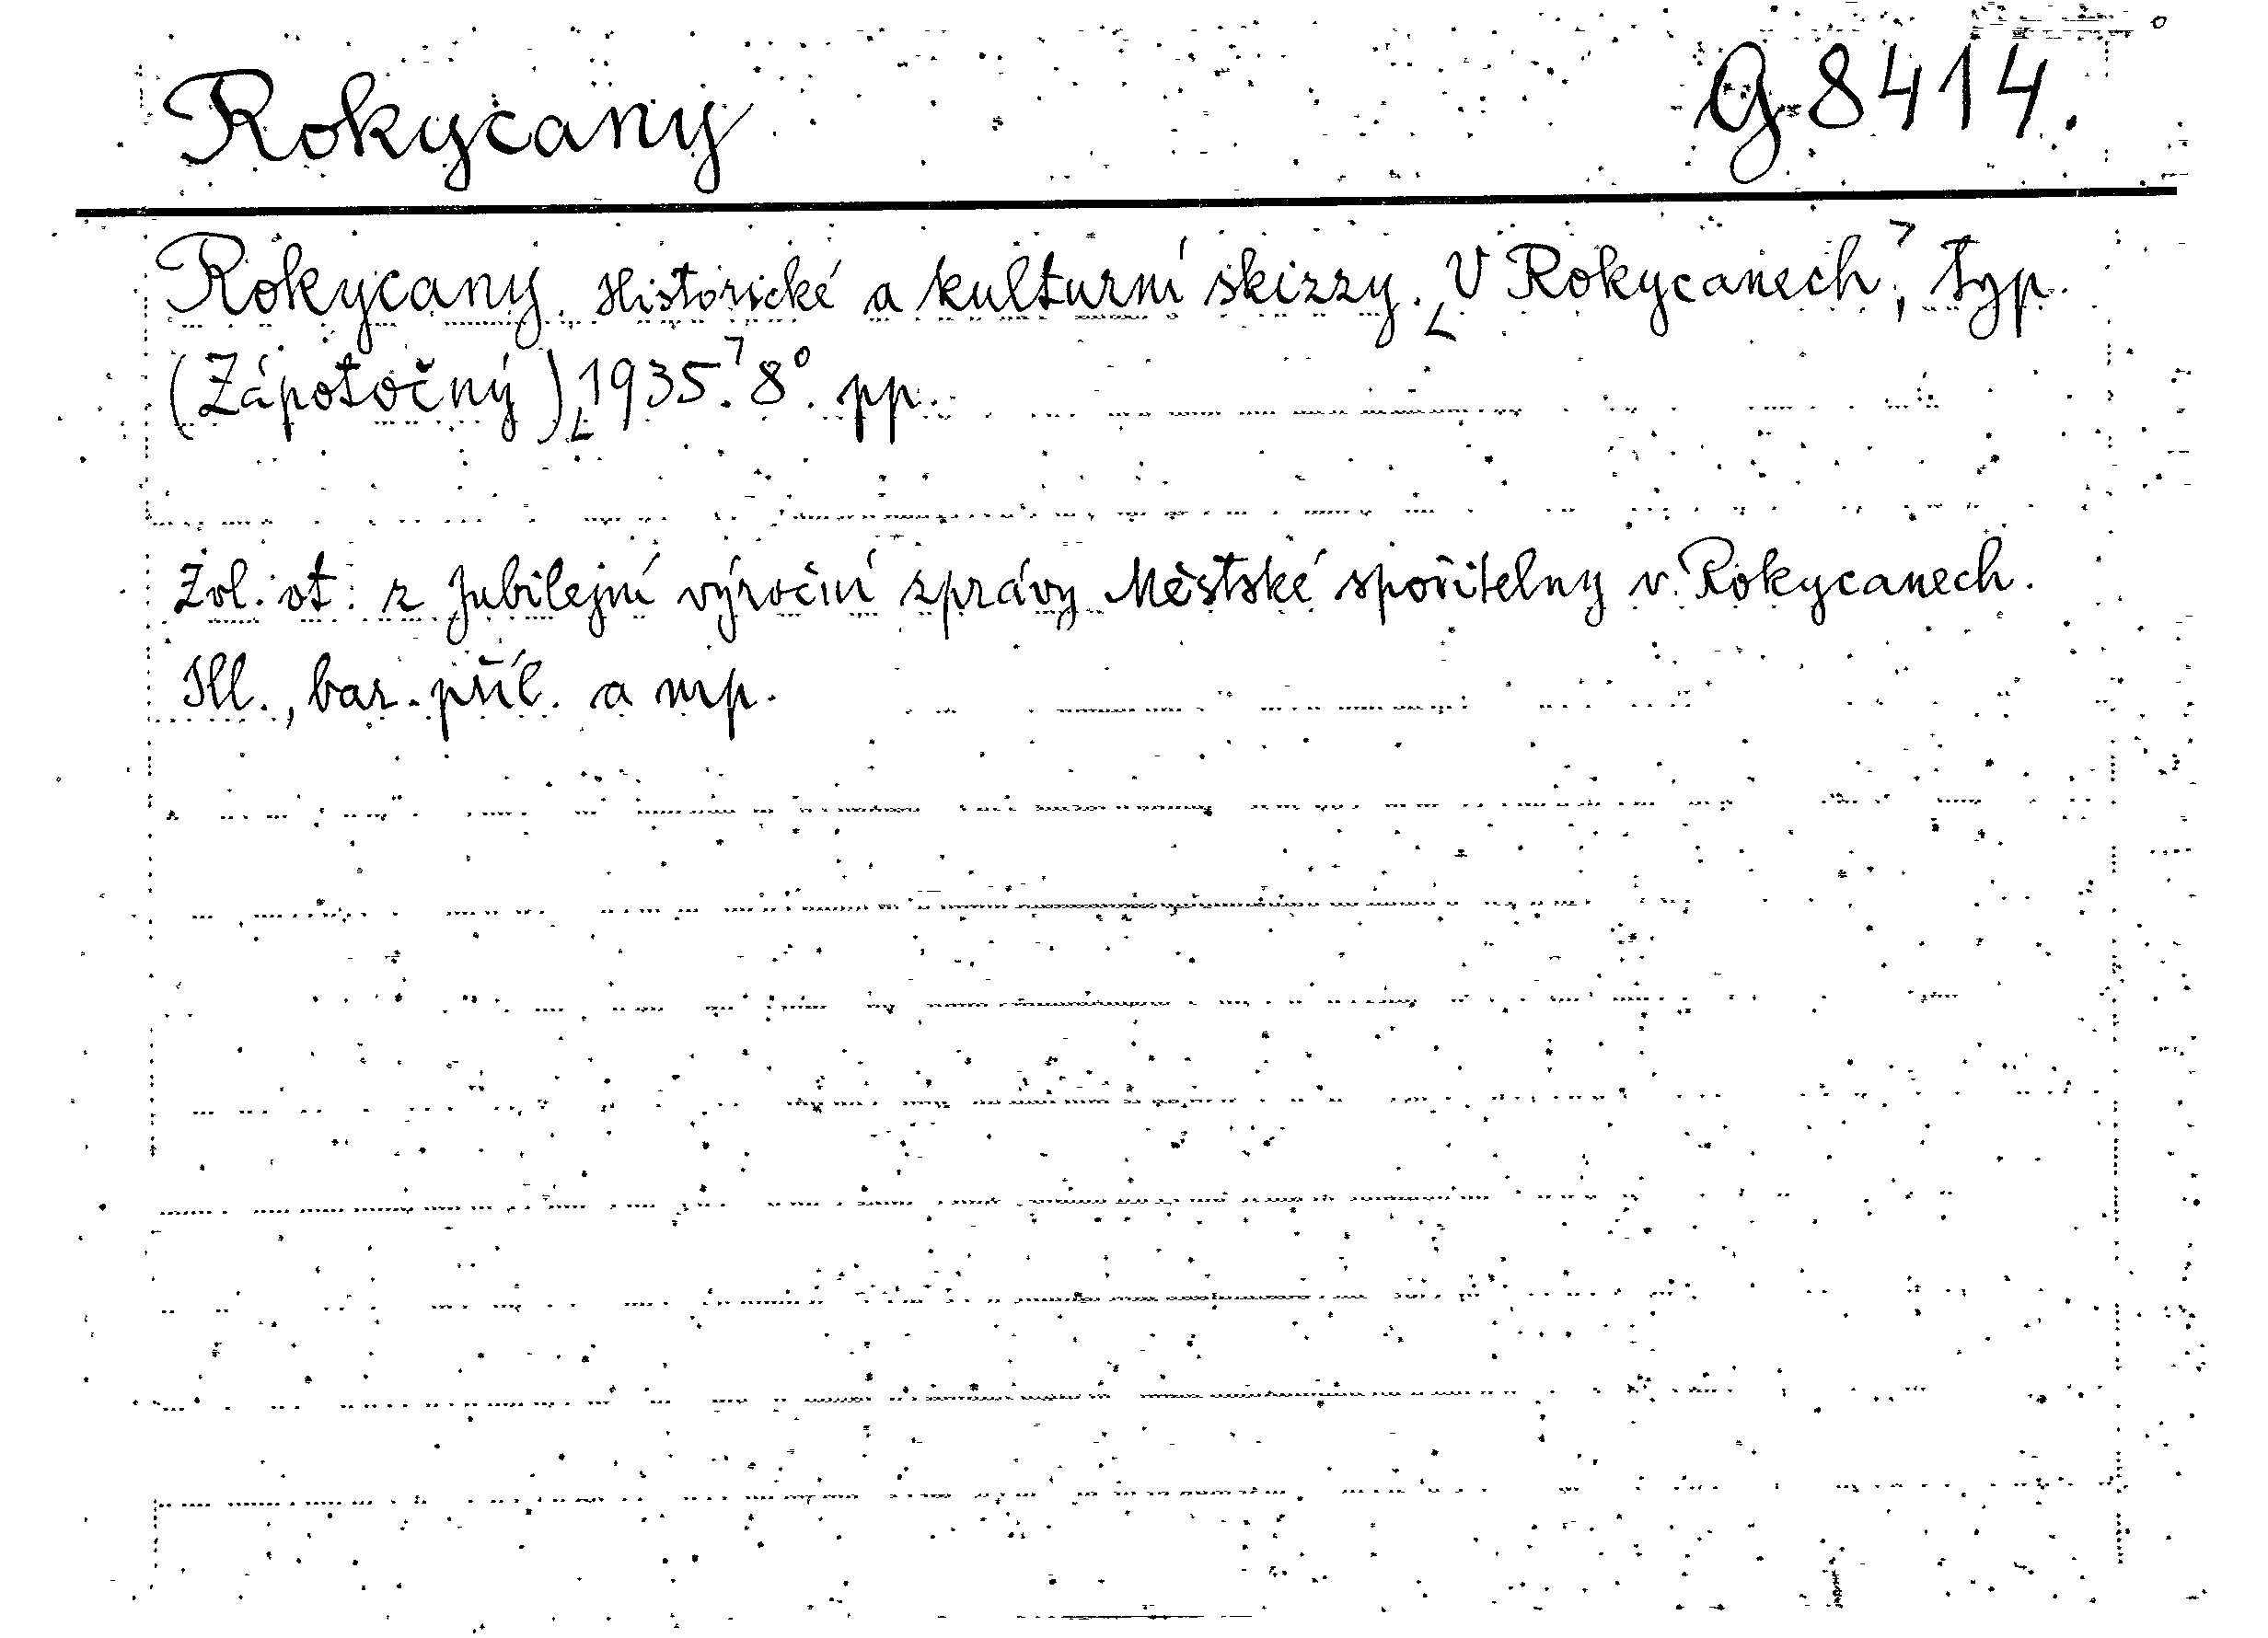 Rokycany G 8414.
Rokycany. Historické a kulturní skizzy. [V Rokycanech], typ.
(Zápotočný) [1935]. 8°. pp.
Zvl. ot. z Jubilejní výroční zprávy Městské spořitelny v Rokycanech.
Ill., bar. příl. a mp.